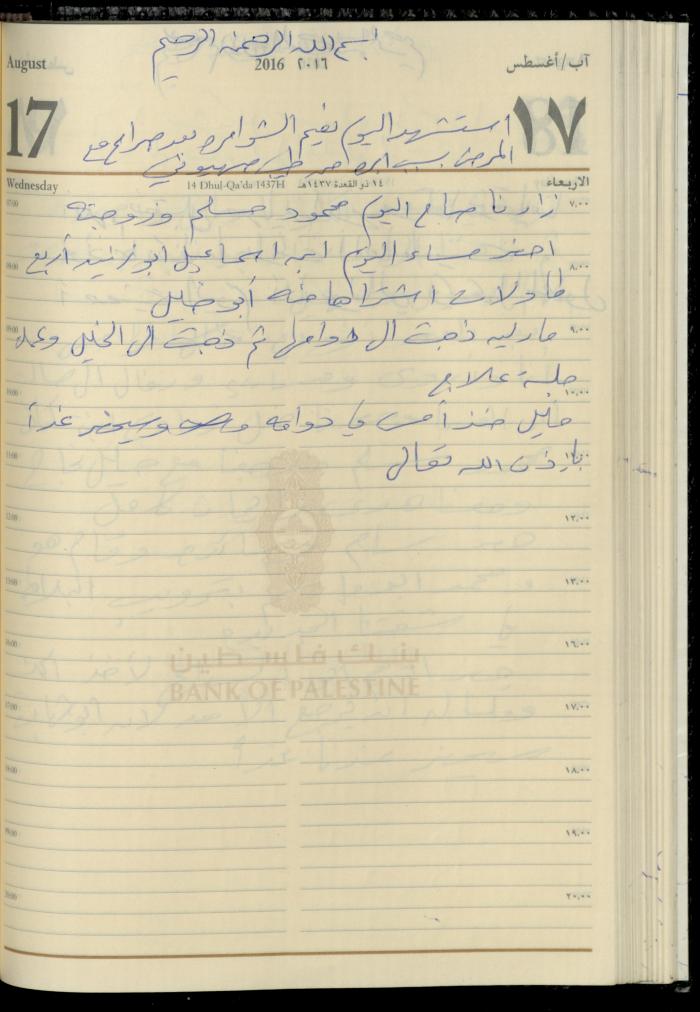 بسم الله الرحمن الرحيم
August 2016 ٢٠١٦ آب/أغسطس
17 ١٧
استشهد اليوم نعيم الشوامره بعد صراع مع
المرض بسبب طبي صهيوني
Wednesday 14 Dhul-Qa'da 1437H ١٤ ذو القعدة ١٤٣٧هـ الاربعاء
زارنا صباح اليوم محمود مسلم وزوجته
احضر مساء اليوم ابن اسماعيل ابو زنيد أربع
طاولات اشتراها منه أبو خليل
ذهبت الى دوامها ثم ذهبت الى الخليل وعمل
جلسة علاج
خليل منذ أمس في دوامه وسيحضر غداً
بإذن الله تعالى
07:00 ٧,٠٠
08:00 ٨,٠٠
09:00 ٩,٠٠
10:00 ١٠,٠٠
11:00 ١١,٠٠
12:00 ١٢,٠٠
13:00 ١٣,٠٠
16:00 ١٦,٠٠
بنك فلسطين
BANK OF PALESTINE
17:00 ١٧,٠٠
18:00 ١٨,٠٠
19:00 ١٩,٠٠
20:00 ٢٠,٠٠